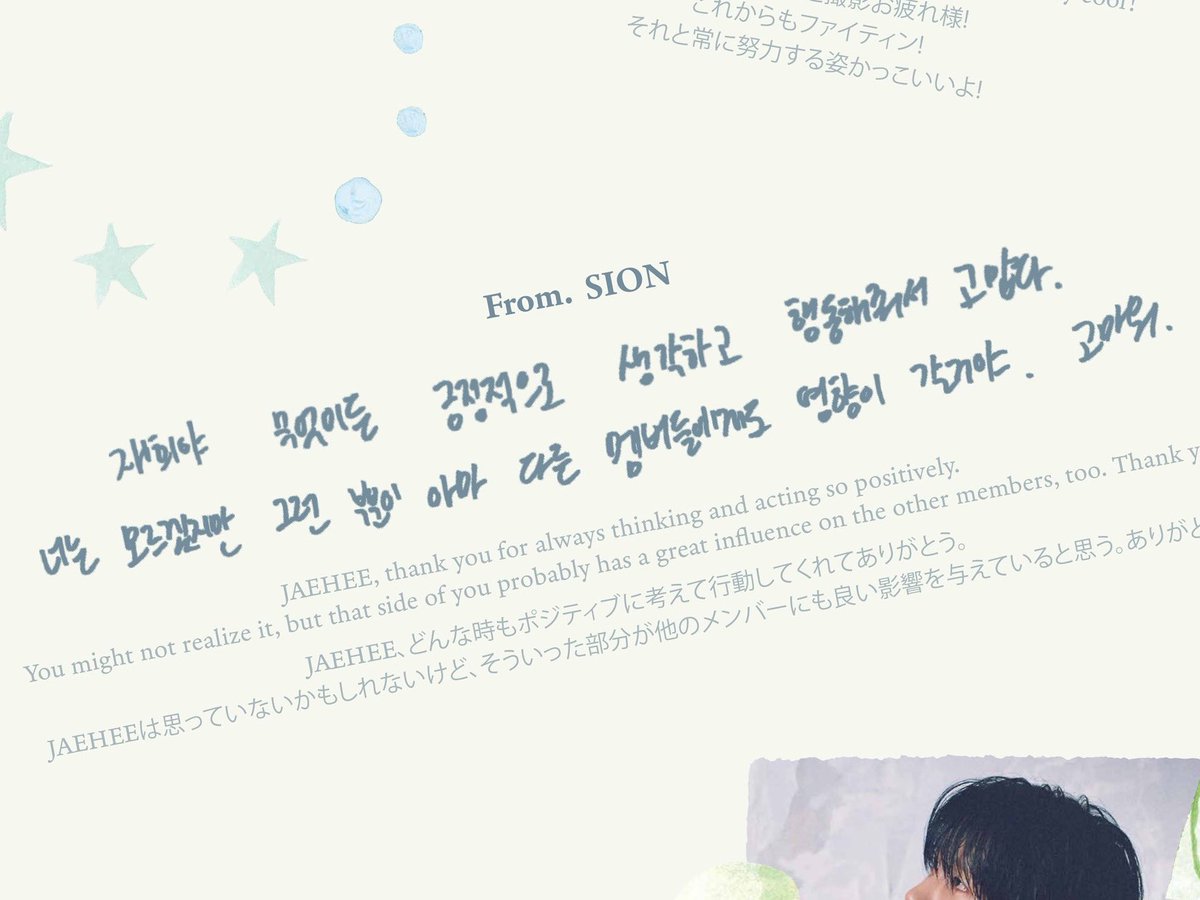 cool!
撮影お疲れ様!
これからもファイティン!
それと常に努力する姿かっこいいよ!
From. SION
재희야 무엇이든 긍정적으로 생각하고 행동해줘서 고맙다.
너는 모르겠지만 그런 부분이 아마 다른 멤버들에게도 영향이 갈거야. 고마워.
JAEHEE, thank you for always thinking and acting so positively.
You might not realize it, but that side of you probably has a great influence on the other members, too. Thank
JAEHEE、どんな時もポジティブに考えて行動してくれてありがとう。
JAEHEEは思っていないかもしれないけど、そういった部分が他のメンバーにも良い影響を与えていると思う。ありが